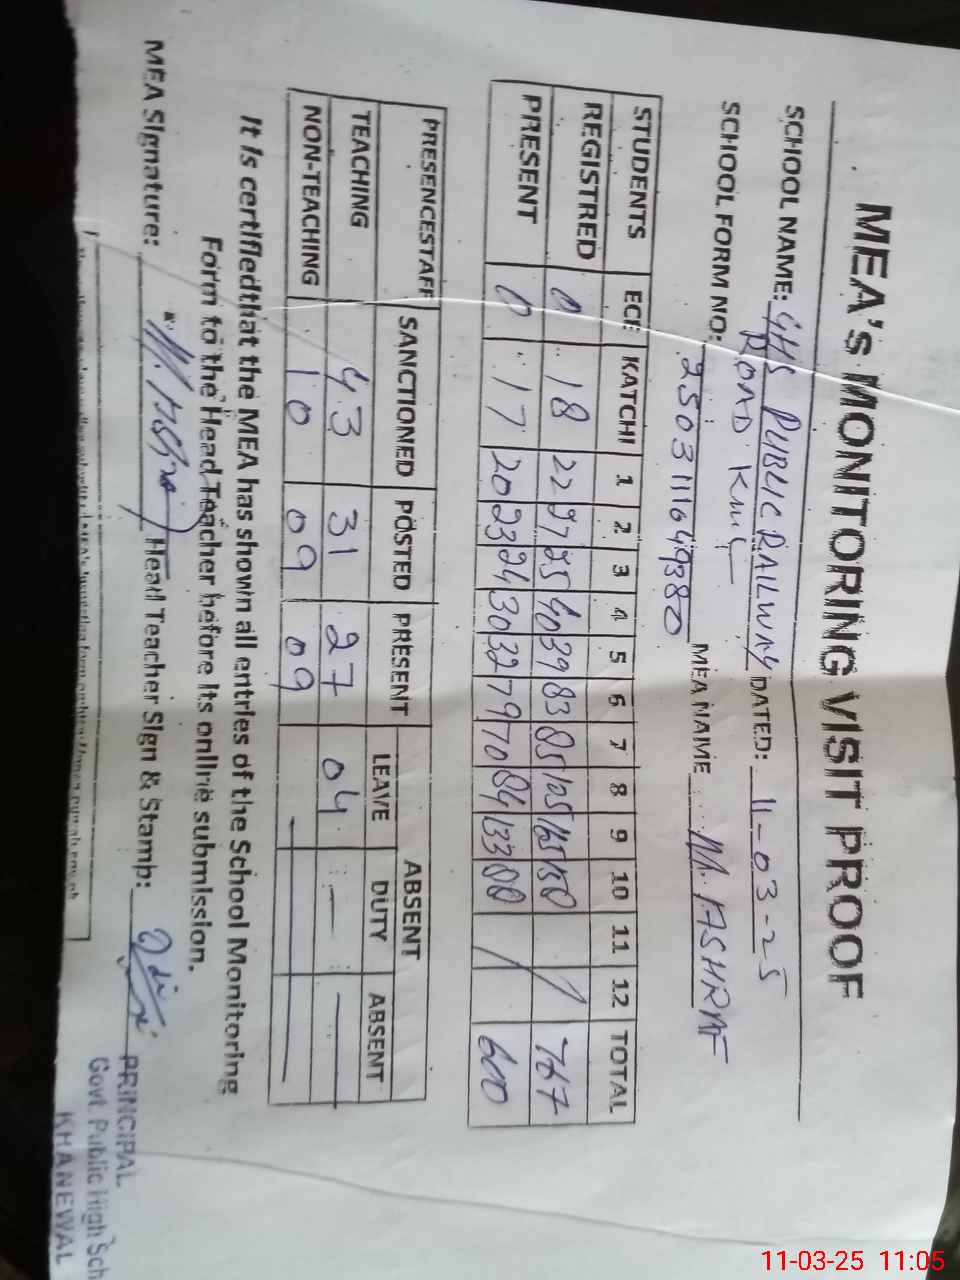 MEA's MONITORING VISIT PROOF
SCHOOL NAME: GHS PUBLIC RAILWAY DATED: 11-03-25
ROAD KWL
SCHOOL FORM NO: 2503111649380 MEA NAME M. ASHRAF
STUDENTS ECE KATCHI 1 2 3 4 5 6 7 8 9 10 11 12 TOTAL
REGISTRED 0 18 22 27 25 40 39 83 85 105 165 150 767
PRESENT 0 17 20 23 24 30 32 79 70 84 133 88 600
PRESENCESTAFF SANCTIONED POSTED PRESENT ABSENT
LEAVE DUTY ABSENT
TEACHING 43 31 27 04 — —
NON-TEACHING 10 09 09 — — —
It is certifiedthat the MEA has shown all entries of the School Monitoring
Form to the Head Teacher before its online submission.
MEA Signature: Head Teacher Sign & Stamb:
PRINCIPAL
Govt. Public High Sch
KHANEWAL
11-03-25 11:05